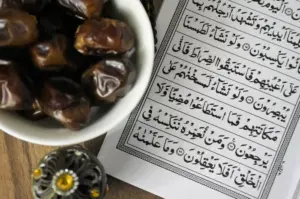 اَيْدِيْهِمْ وَتَشْهَدُ اَرْجُلُهُمْ
يَكْسِبُوْنَ ۝ وَلَوْ نَشَاۤءُ لَطَمَسْنَا
عَلٰٓى اَعْيُنِهِمْ فَاسْتَبَقُوا الصِّرَاطَ فَاَنّٰى
يُبْصِرُوْنَ ۝ وَلَوْ نَشَاۤءُ لَمَسَخْنٰهُمْ عَلٰى
مَكَانَتِهِمْ فَمَا اسْتَطَاعُوْا مُضِيًّا وَّلَا
يَرْجِعُوْنَ ۝ وَمَنْ نُّعَمِّرْهُ نُنَكِّسْهُ فِى
الْخَلْقِ اَفَلَا يَعْقِلُوْنَ ۝ وَمَا عَلَّمْنٰهُ